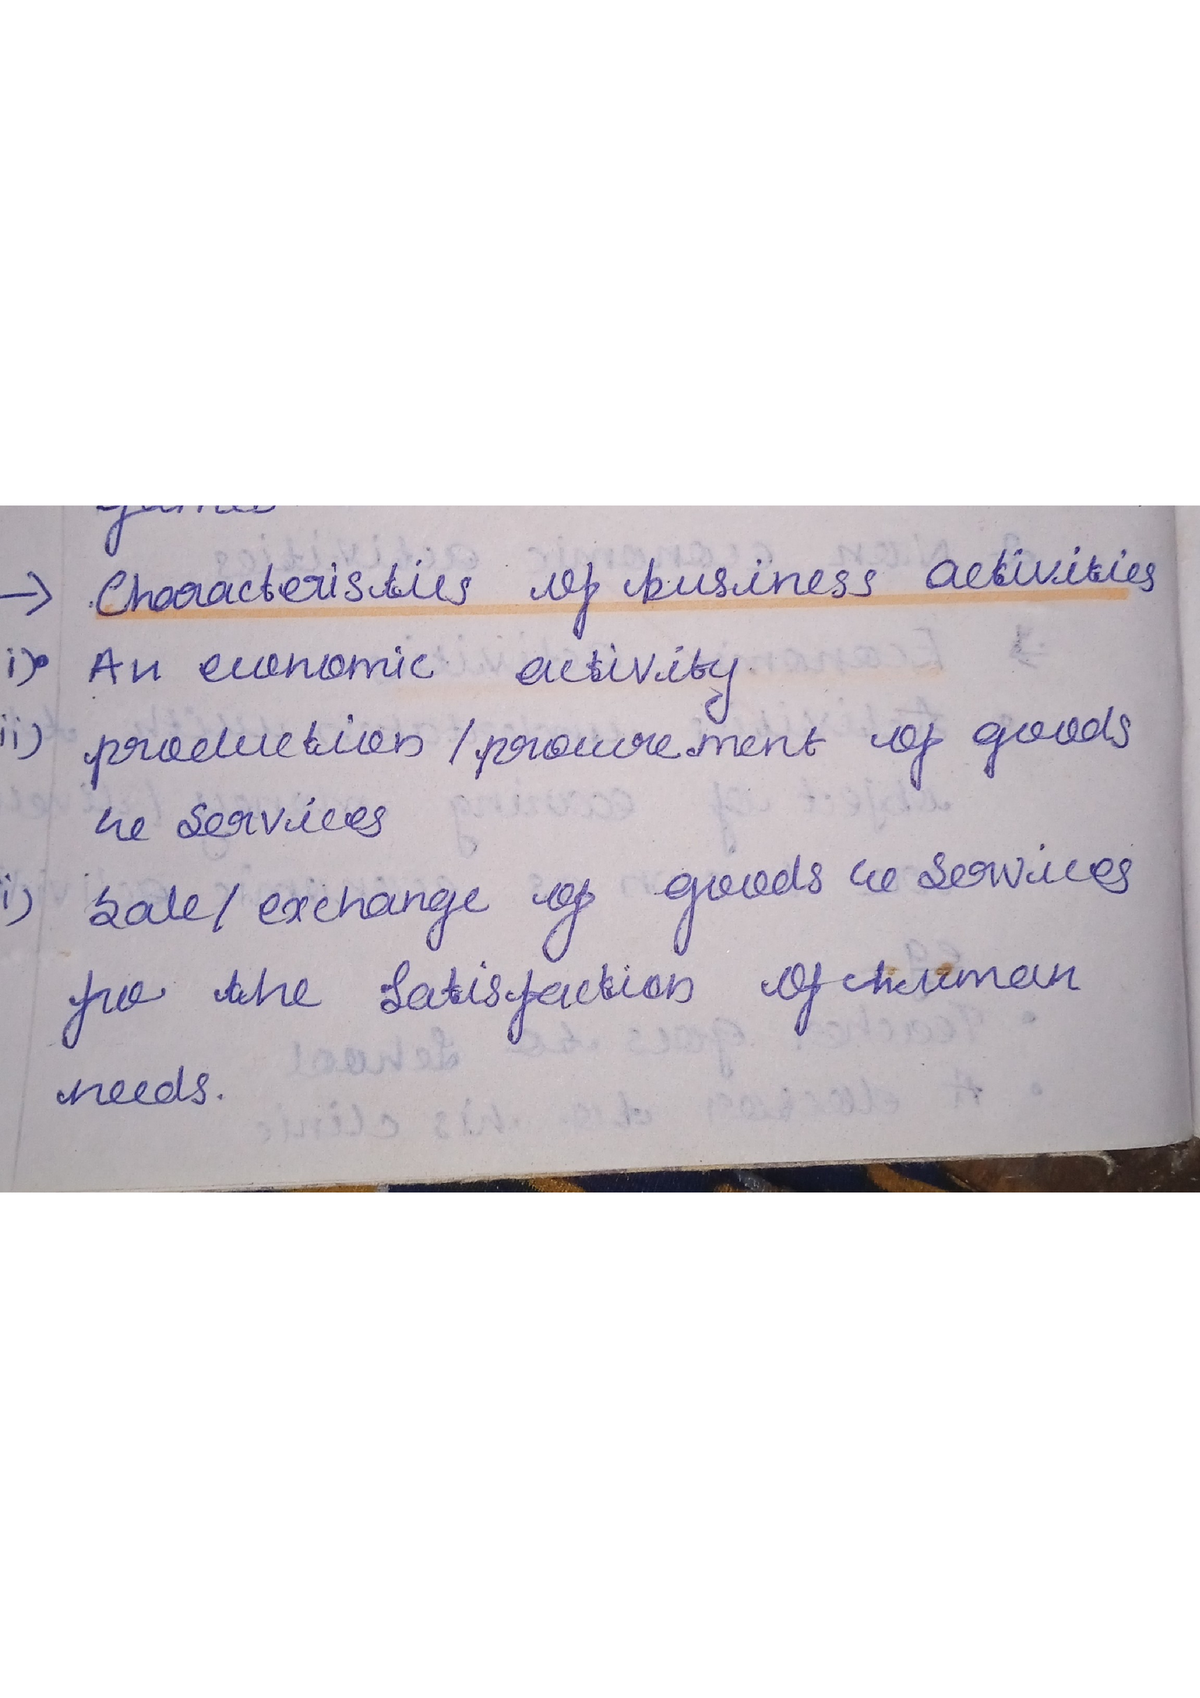 → Characteristics of business activities
i)• An economic activity.
ii) production / procurement of goods
& services
i) Sale / exchange of goods & services
for the satisfaction of human
needs.